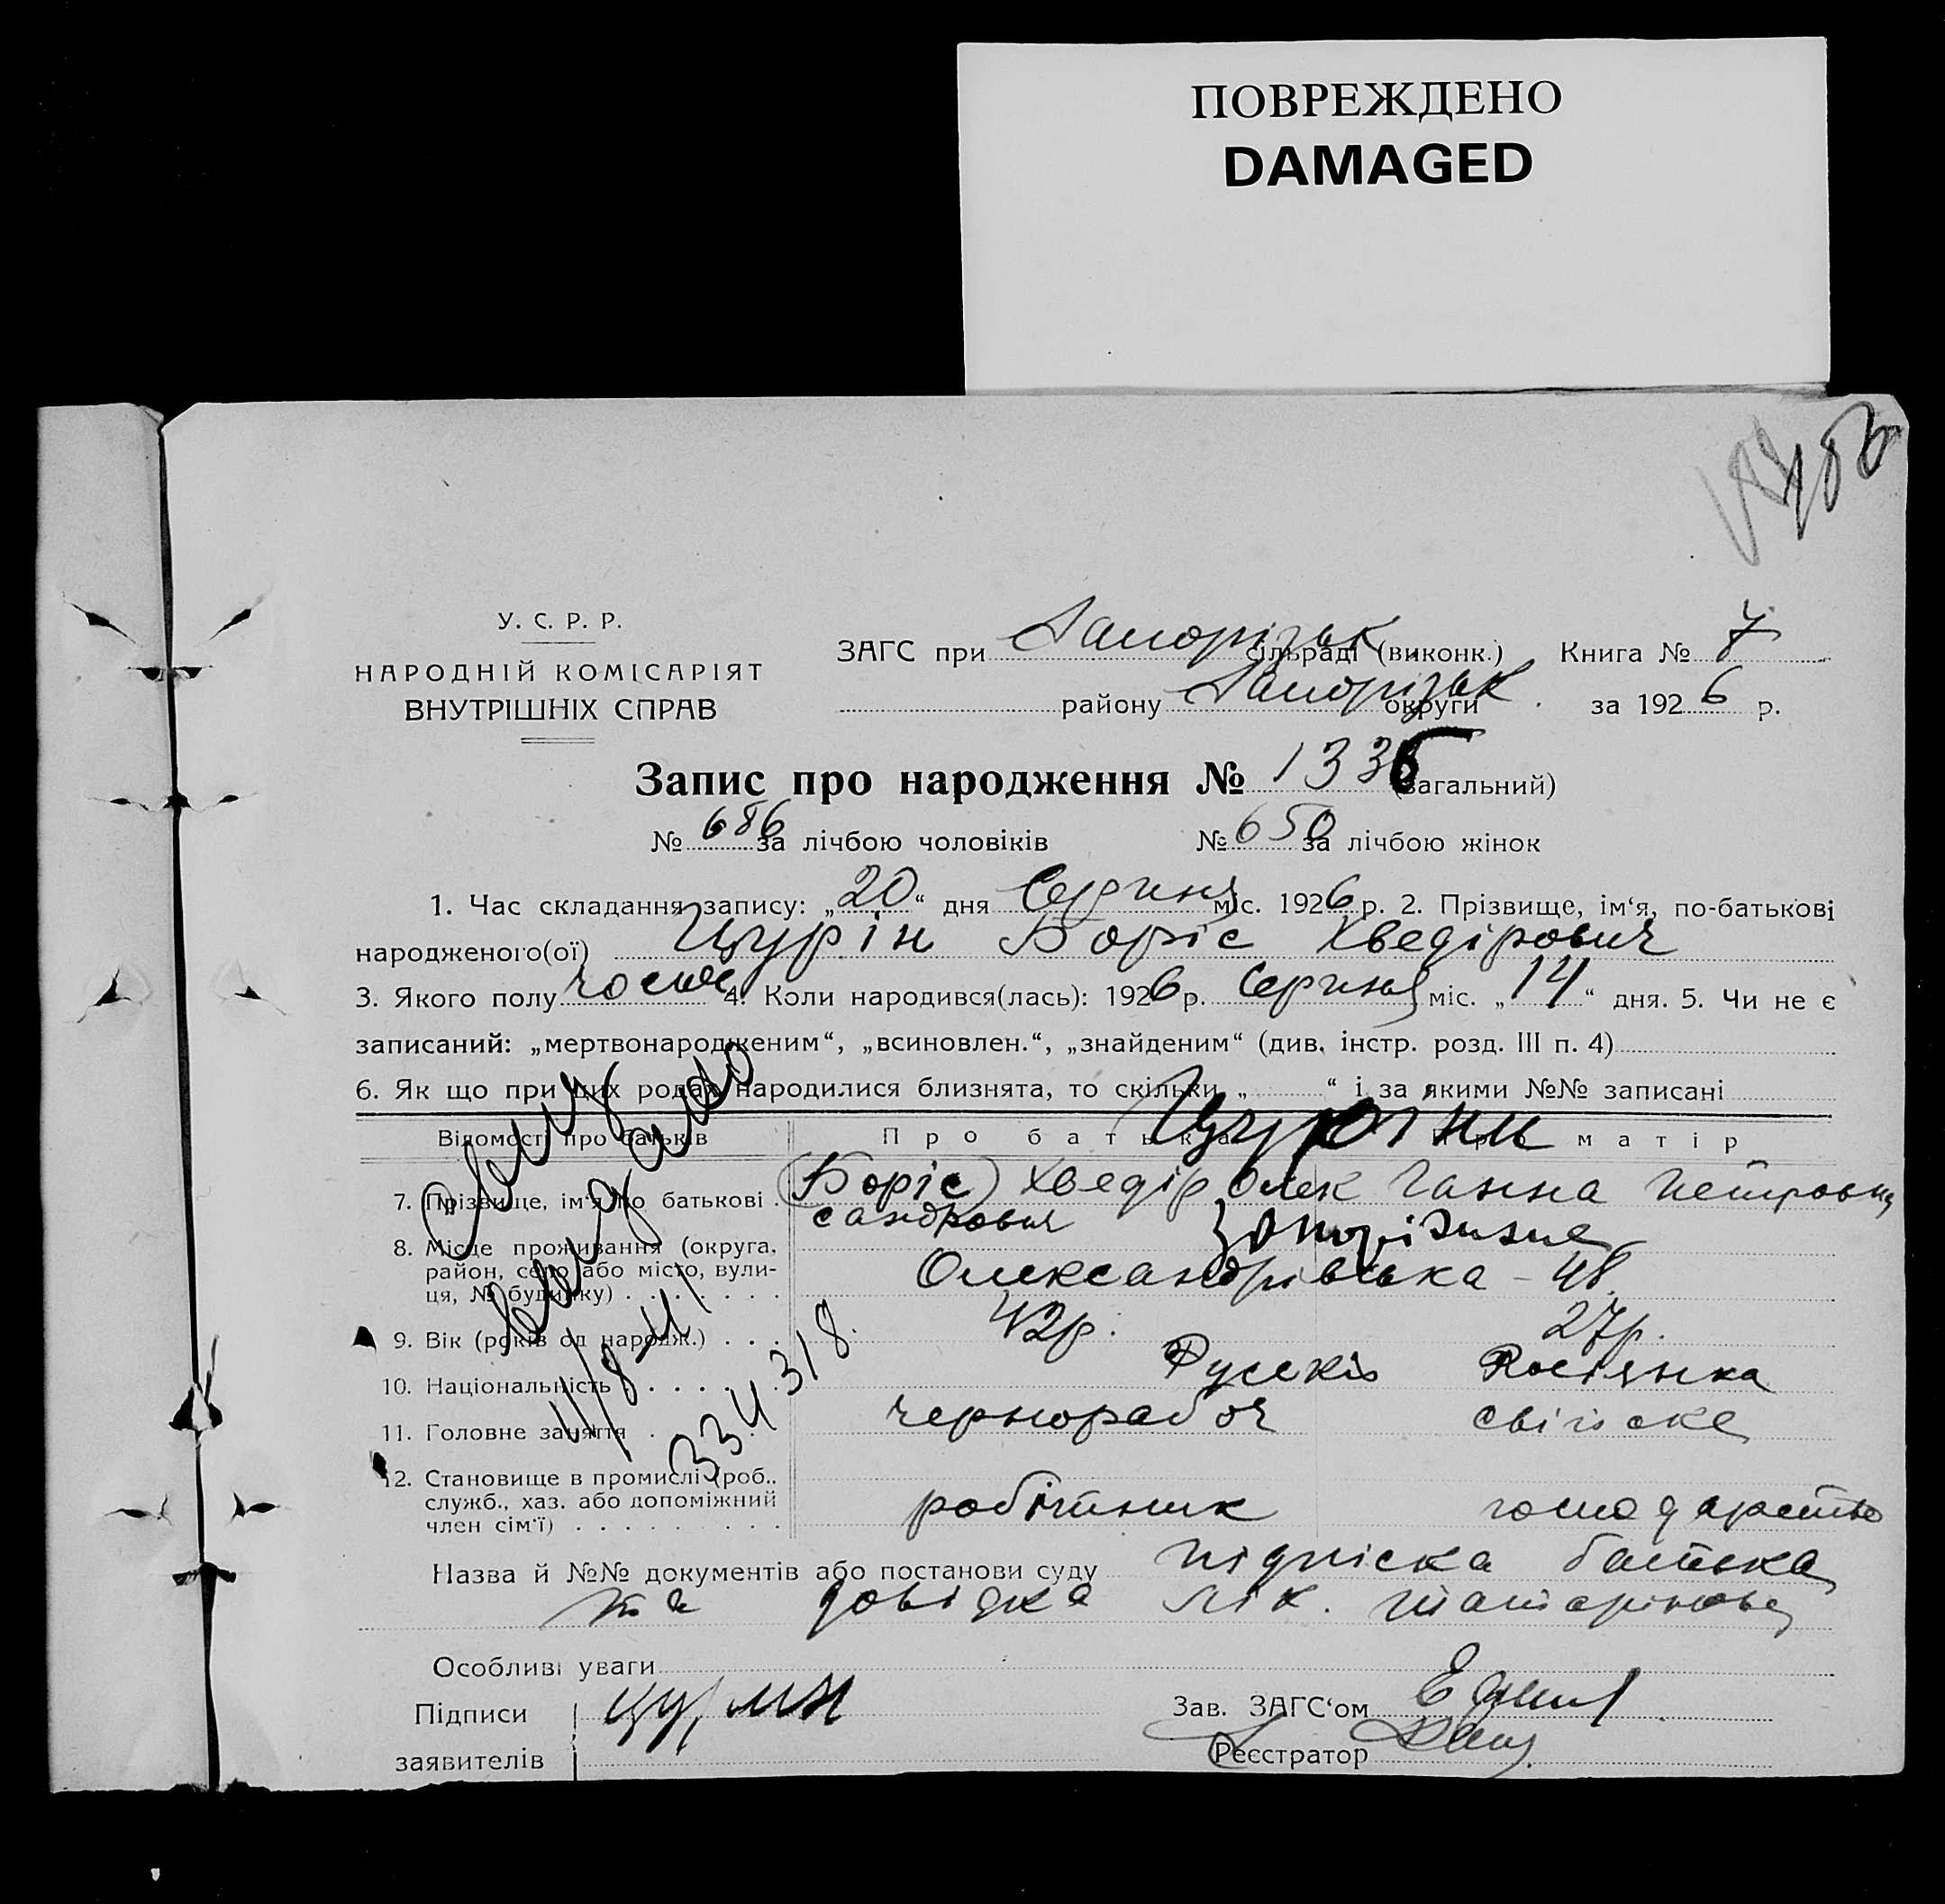 ПОВРЕЖДЕНО
DAMAGED
У. С. Р. Р.
НАРОДНІЙ КОМІСАРІЯТ
ВНУТРІШНІХ СПРАВ
ЗАГС при Запорізьк сільраді (виконк.) Книга № 7
району Запорізьк округи за 1926 р.
Запис про народження № 1336 (загальний)
№ 686 за лічбою чоловіків № 650 за лічбою жінок
1. Час складання запису: „20“ дня Серпня міс. 1926 р. 2. Прізвище, ім‘я, по-батькові
народженого(ої) Цурін Боріс Хведірович
3. Якого полу чолов 4. Коли народився(лась): 1926 р. Серпня міс. „14“ дня. 5. Чи не є
записаний: „мертвонародженим“, „всиновлен.“, „знайденим“ (див. інстр. розд. III п. 4)
6. Як що при цих родах народилися близнята, то скільки „ “ і за якими №№ записані
Відомості про батьків Про батька Про матір
7. Прізвище, ім‘я по батькові . (Боріс) Хведір Олек Ганна Петровна
сандрович
8. Місце проживання (округа, Запоріжжя
район, село або місто, вули- Олександрівська - 48.
ця, № будинку)
9. Вік (років од народж.) . . . 42р. 27р.
10. Національність . . . . . . Руській Росіянка
11. Головне заняття . чернорабоч свійське
12. Становище в промислі (роб.,
служб., хаз. або допоміжний робітник господарство
член сім‘ї) . . . . . . . . .
Назва й №№ документів або постанови суду підпіска батька
та довідка лік. Татарінова
Особливі уваги
Підписи Цурин Зав. ЗАГС‘ом
заявителів Реєстратор